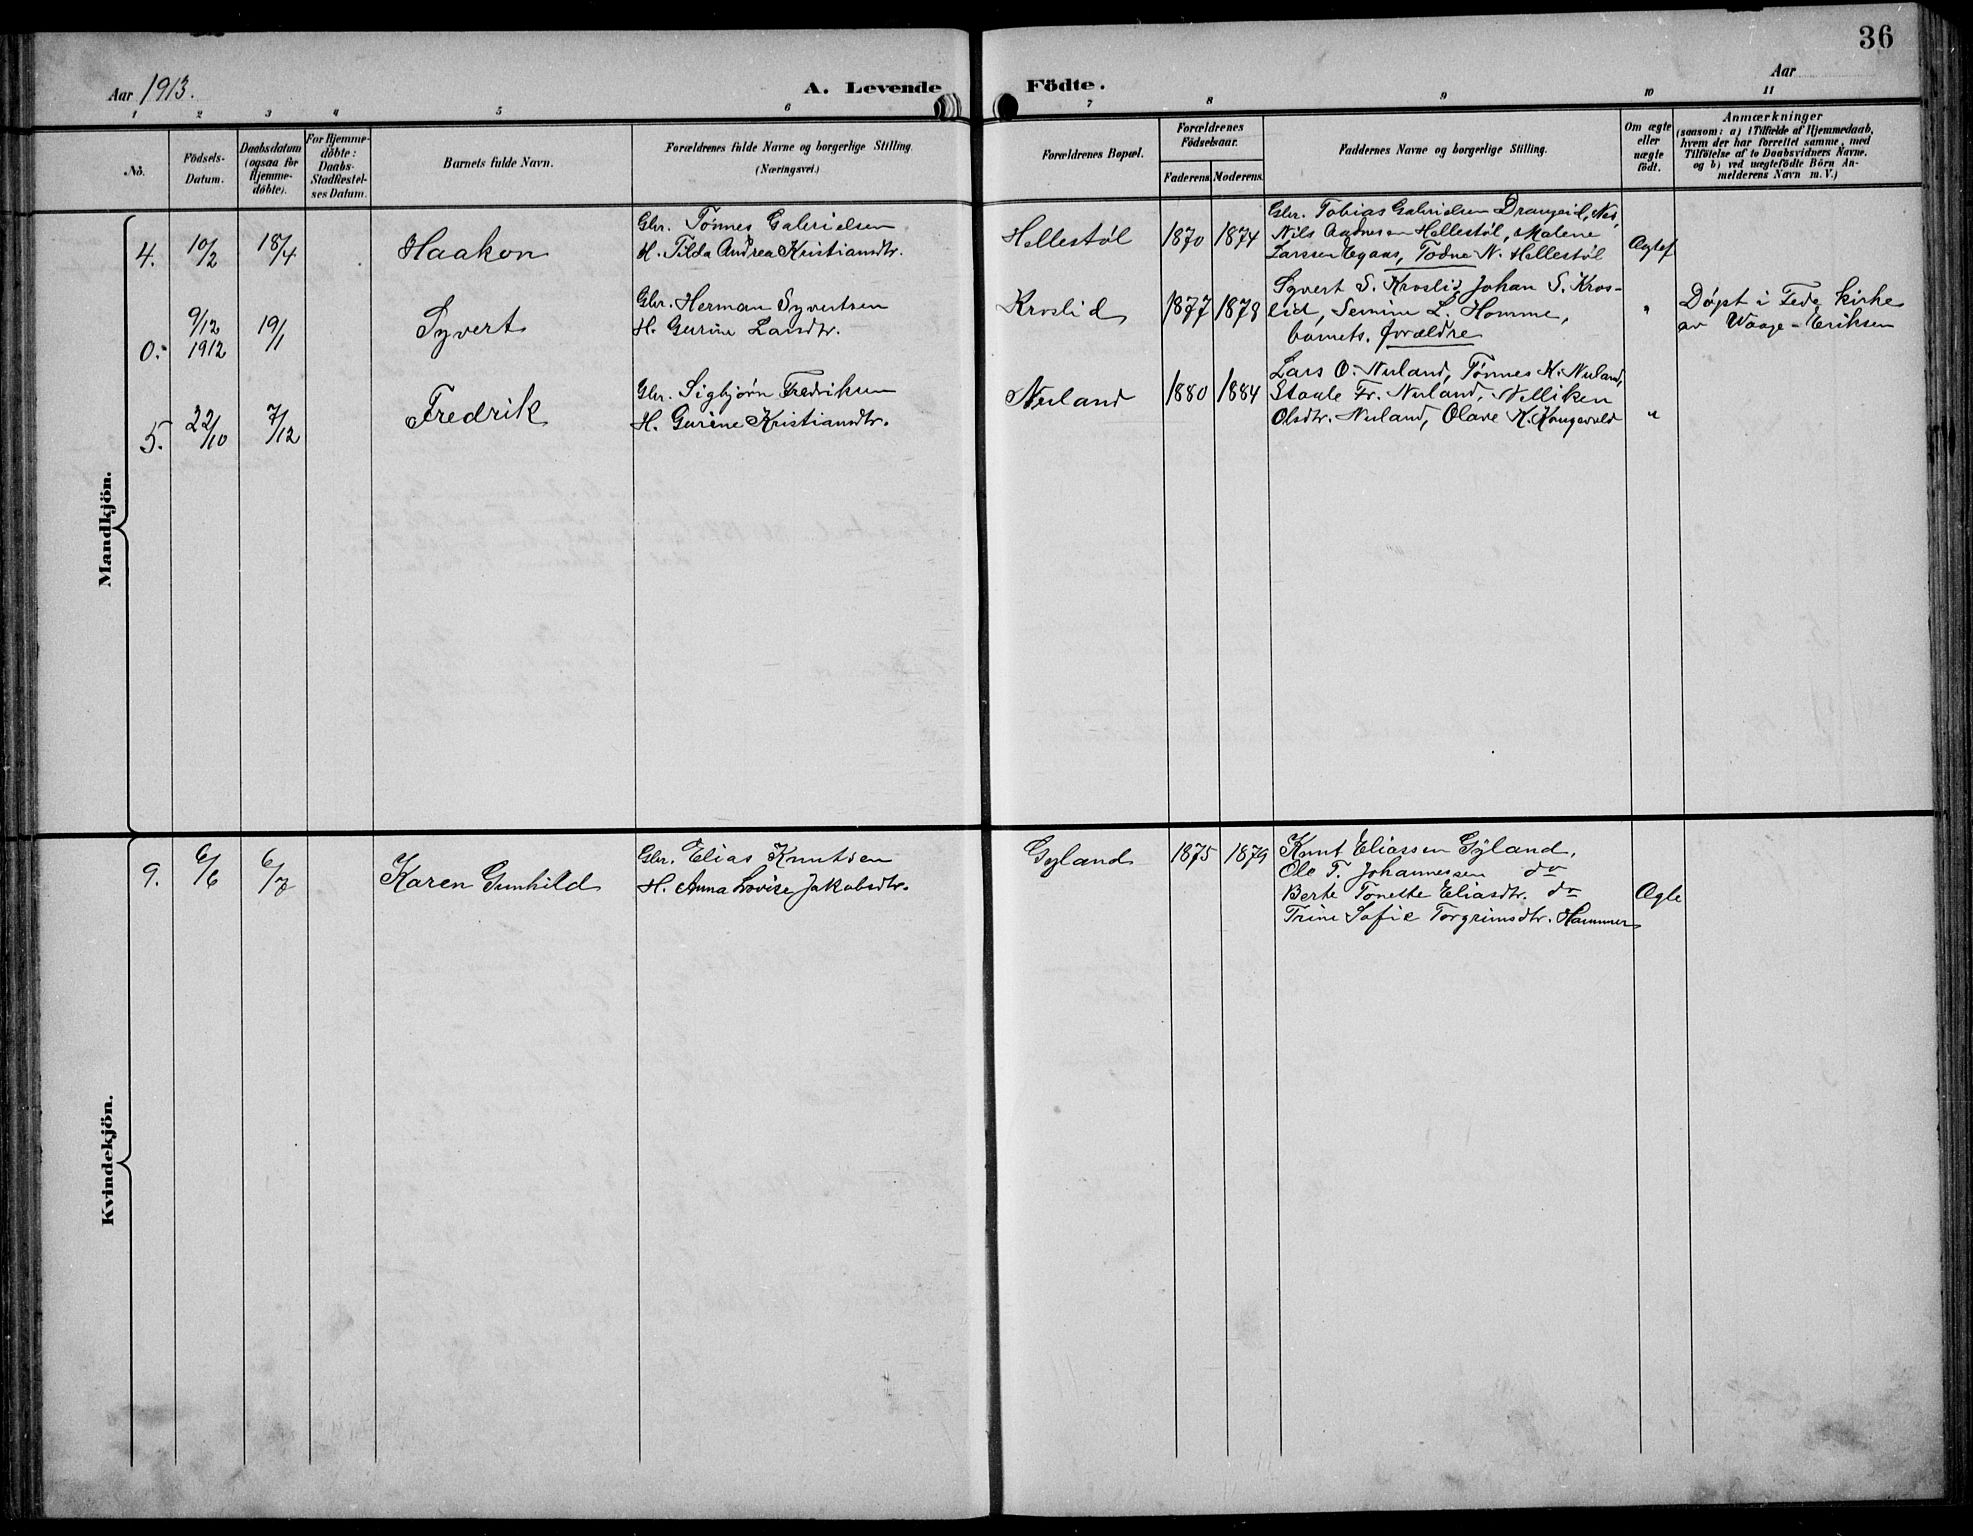 36
Aar 1913.
A. Levende
Födte.
Aar
1 2 3 4 5 6 7 8 9 10 11
No.
Födsels-
Datum.
Daabsdatum
(ogsaa for
Hjemme-
döbte).
For Hjemme-
döbte:
Daabs-
Stadfæstel-
ses Datum.
Barnets fulde Navn.
Forældrenes fulde Navne og borgerlige Stilling.
(Næringsvei.)
Forældrenes Bopæl.
Forældrenes
Födselsaar.
Faderens. Moderens.
Faddernes Navne og borgerlige Stilling.
Om ægte
eller
uægte
födt.
Anmærkninger
(saasom: a) i Tilfælde af Hjemmedaab,
hvem der har forrettet samme, med
Tilföielse af to Daabsvidners Navne.
og b) ved uægtefödte Börn An-
melderens Navn m. V.)
Mandkjön.
4. 10/2 18/4 Haakon
Gbr. Tönnes Gabrielsen
H. Tilda Andrea Kristiansdtr.
Hellestøl 1870 1874
Gbr. Tobias Gabrielsen Drangeid, Nes,
Nils Hellestøl, Malene
Larssen Egaas, Todne N. Hellestøl
Ægtef
0. 9/12 1912 19/1 Syvert
Gbr. Herman Syvertsen
H. Gurine Larsdtr.
Kroslid 1877 1878
Syvert S. Kroslid, Johan S. Kros-
lid, Semine L. Homme,
barnets. forældre
"
Døpt i Feda kirke
av Waage-Eriksen
5. 22/10 7/12 Fredrik
Gbr. Sigbjørn Fredriksen
H. Gurine Kristiansdtr.
Nuland 1880 1884
Lars O. Nuland, Tønnes K. Nuland,
Staale Fr. Nuland, Nelliken
Olsdtr. Nuland, Olave K. Kongevold
"
Kvindekjön.
9. 6/6 6/7 Karen Gunhild
Gbr. Elias Knutsen
H. Anna Lovise Jakobsdtr.
Gyland 1875 1879
Knut Eliassen Gyland,
Ole T. Johannessen do
Berte Tonette Eliasdtr. do
Trine Sofie Torgrimsdtr. Hammer
Ægte